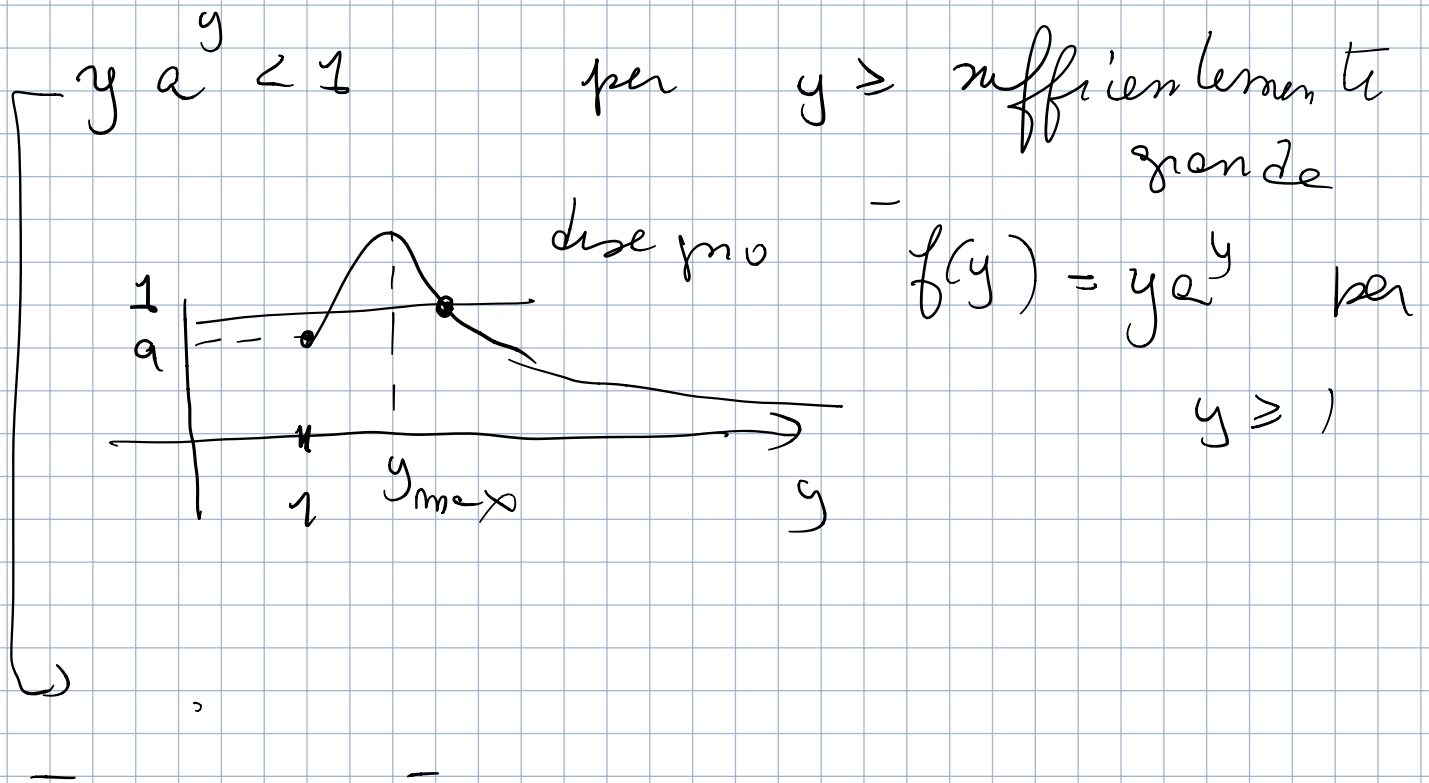 y a^y < 1 per y ≥ sufficientemente
grande
disegno f(y) = y a^y per
y ≥ 1
1
a
1 y_max y